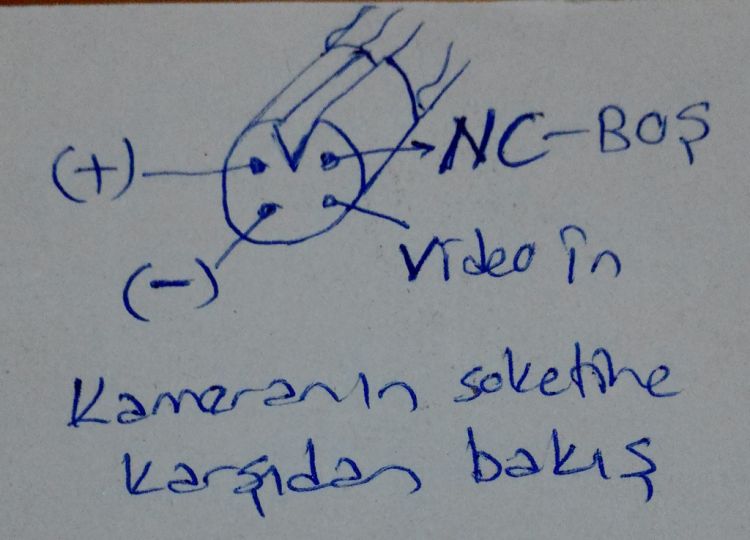 (+)
NC-BOŞ
(-)
Video in
Kameranın soketine
karşıdan bakış